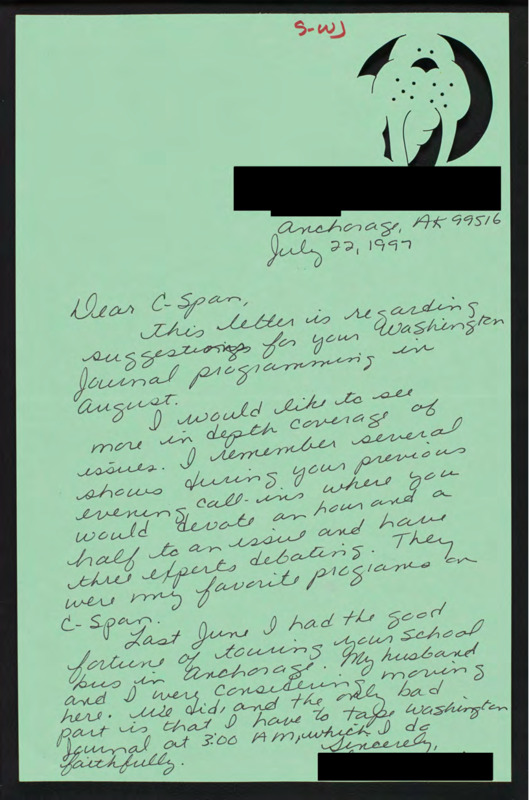 S-WJ
Anchorage, AK 99516
July 22, 1997
Dear C-Span,
This letter is regarding
suggestions for your Washington
Journal programming in
August.
I would like to see
more in depth coverage of
issues. I remember several
shows during your previous
evening call-ins where you
would devote an hour and a
half to an issue and have
three experts debating. They
were my favorite programs on
C-Span.
Last June I had the good
fortune of touring your school
bus in Anchorage. My husband
and I were considering moving
here. We did, and the only bad
part is that I have to tape Washington
Journal at 3:00 AM, which I do
faithfully.
Sincerely,